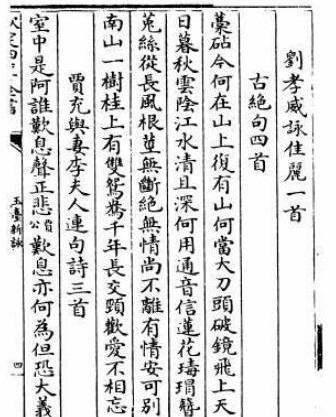 劉孝威詠佳麗一首
古絶句四首
藁砧今何在山上復有山何當大刀頭破鏡飛上天
日暮秋雲陰江水清且深何用通音信蓮花瑇瑁簪
菟絲從長風根莖無斷絕無情尚不離有情安可別
南山一樹桂上有雙鴛鴦千年長交頸歡愛不相忘
賈充與妻李夫人連句詩三首
室中是阿誰歎息聲正悲賈公歎息亦何為但恐大義
玉臺新詠
四